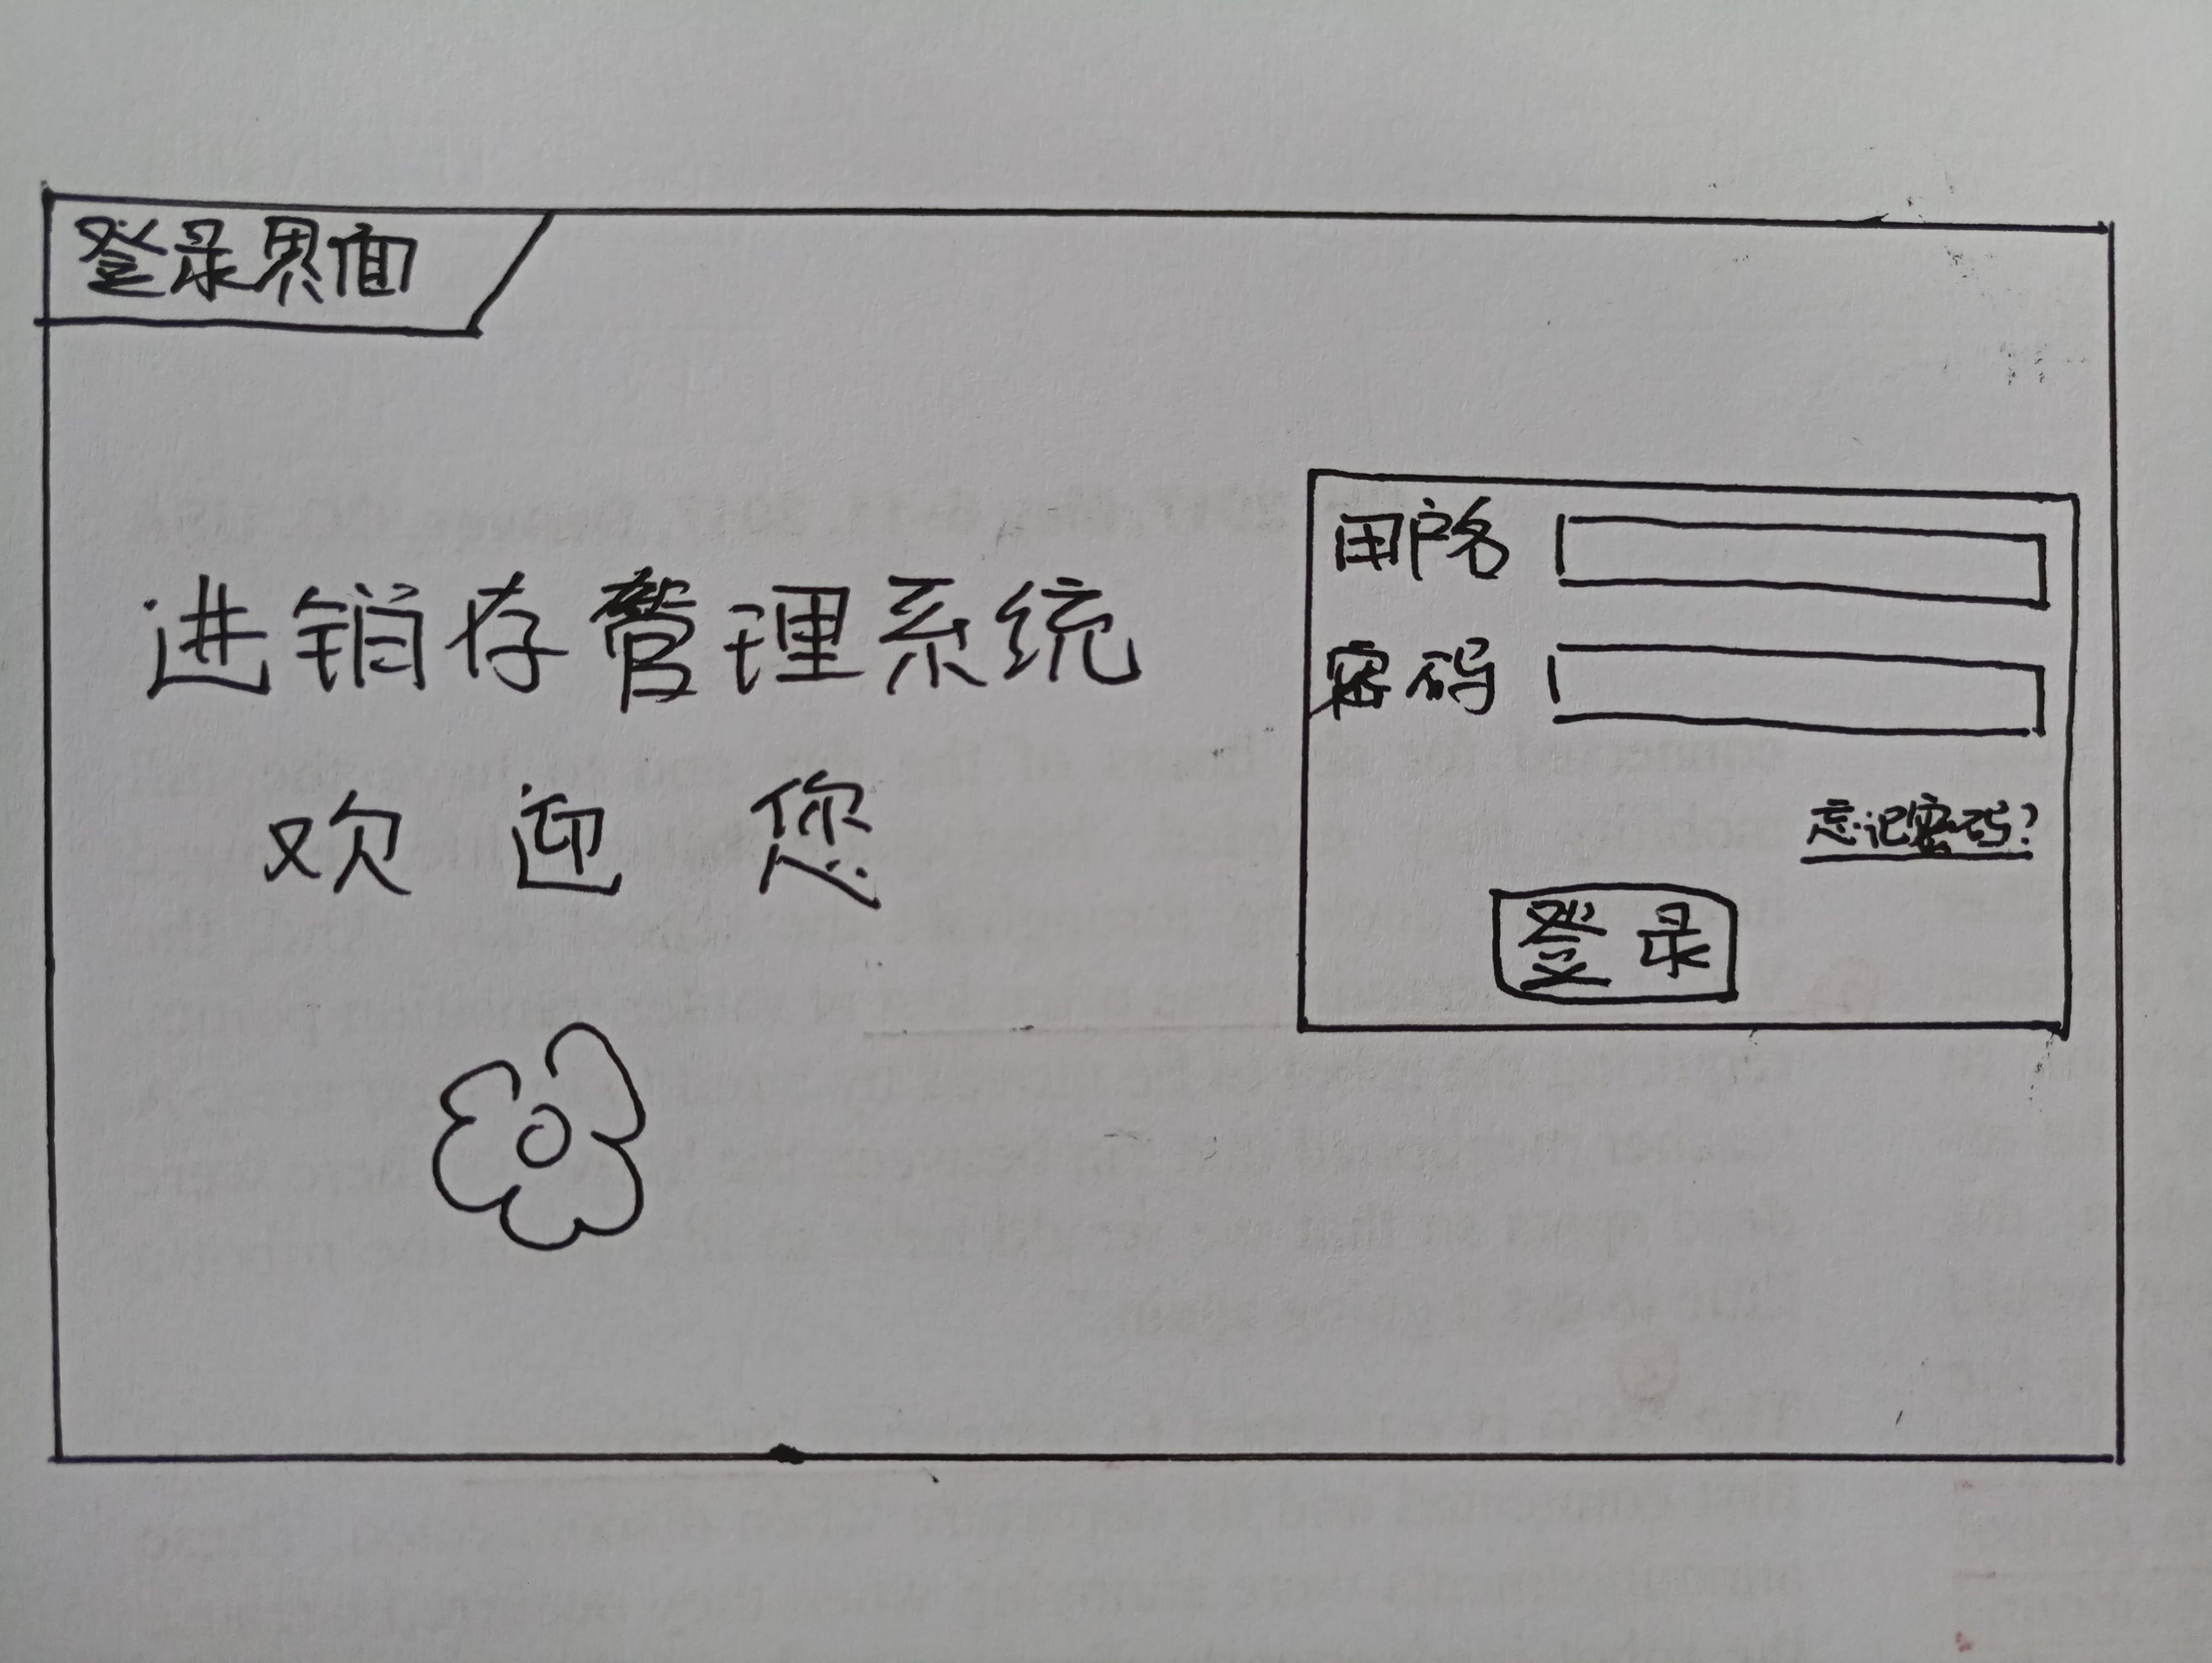 登录界面
进销存管理系统
欢迎您
用户名
密码
忘记密码?
登录